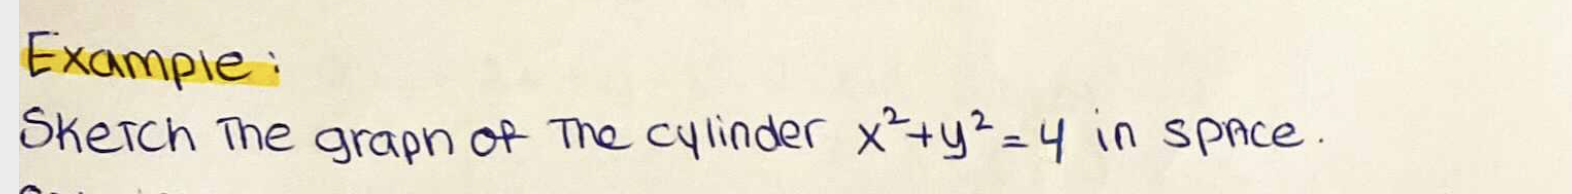 Example:
Sketch The graph of The cylinder x²+y²=4 in space.